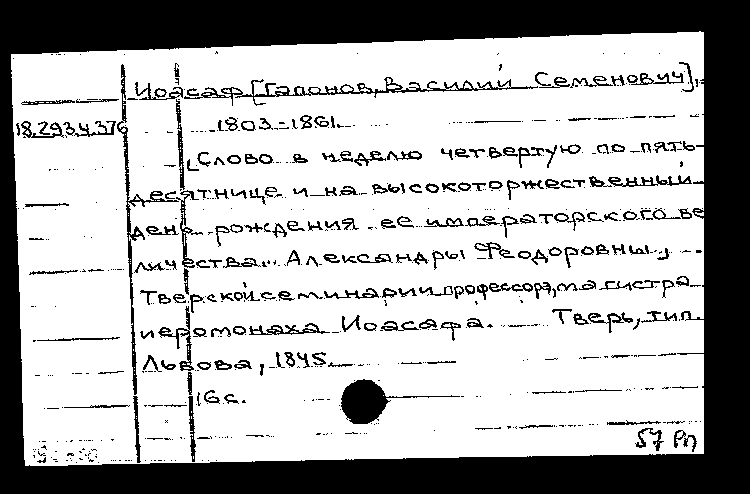 Иоасаф [Гапонов, Василий Семенович],
18.293.4.376 1803-1861.
Слово в неделю четвертую по пять-
десятнице и на высокоторжественный
день рождения ее императорского ве
личества... Александры Феодоровны, ...
Тверской семинарии профессора, магистра
иеромонаха Иоасафа. Тверь, тип.
Львова, 1845.
16 с.
57 Рп